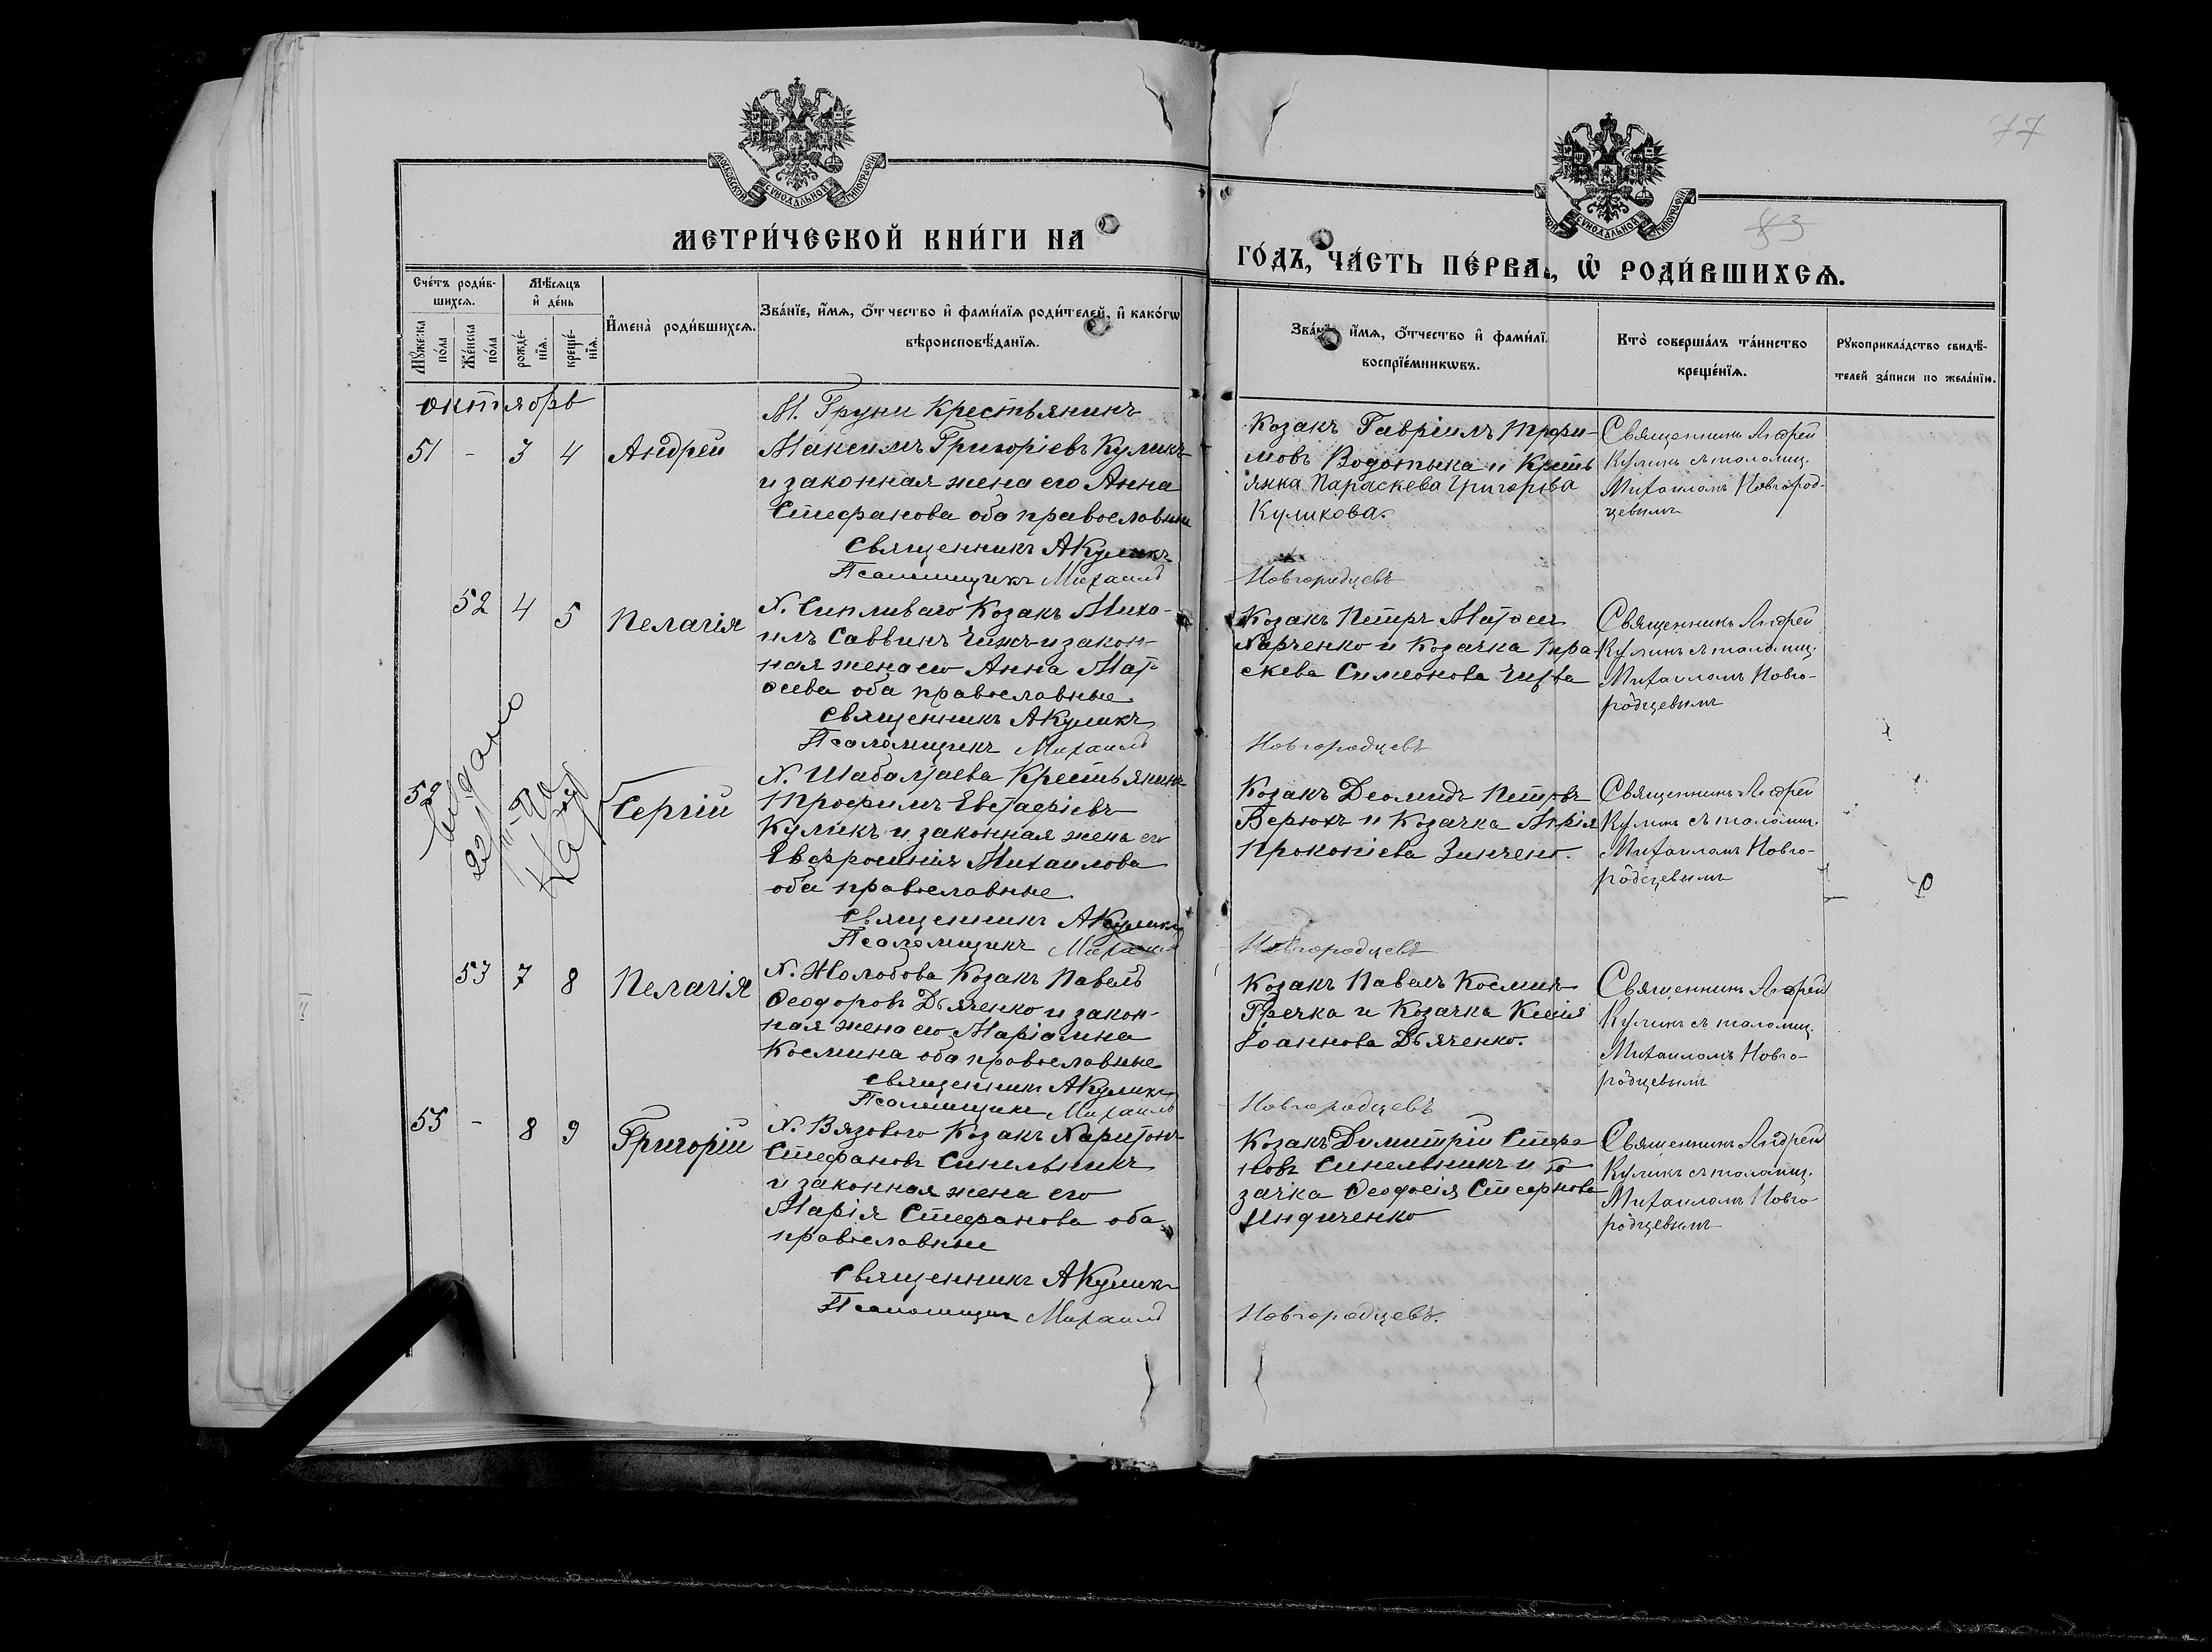 77
МОСКОВСКОЙ СѴНОДАЛЬНОЙ ТИПОГРАФІИ
СѴНОДАЛЬНОЙ ТИПОГРАФІИ
83
МЕТРИ́ЧЕСКОЙ КНИ́ГИ НА
ГО́ДЪ, ЧА́СТЬ ПЕ́РВА, Ѡ҆ РОДИ́ВШИХСѦ.
Сче́тъ роди́в-
шихсѧ.
Мѣ́сѧцъ
и҆ де́нь
Мꙋ́жеска по́ла
Же́нска по́ла
рожде́-нїѧ.
креще́-нїѧ.
И҆мена̀ роди́вшихсѧ.
Зва́нїе, и҆́мѧ, ѻ҆́тчество и҆ фами́лїѧ роди́телей, и҆ како́гѡ
вѣроисповѣ́данїѧ.
Зва́нї и҆́мѧ, ѻ҆́тчество и҆ фами́лї
воспрїе́мникѡвъ.
Кто̀ соверша́лъ та́инство
креще́нїѧ.
Рꙋкоприкла́дство свидѣ́-
телей за́писи по жела́нїю.
октябрь
М. Груни Крестьянинъ
51 - 3 4 Андрей Максимъ Григоріевъ Куликъ
и законная жена его Анна
Стефанова оба православные
Священникъ А Куликъ
Псаломщикъ Михаилъ
Козакъ Гавріилъ Трофи-
мовъ Водотыка и Кресть
янка Параскева Григоріева
Куликова.
Новгородцевъ
Священникъ Андрей
Куликъ съ псаломщ.
Михаиломъ Новгород-
цевымъ
52 4 5 Пелагія Х. Сипливаго Козакъ Миха-
илъ Саввинъ Чижъ и закон-
ная жена его Анна Мат-
ѳеева оба православные
Священникъ А Куликъ
Псаломщикъ Михаилъ
Козакъ Петръ Матѳеев
Харченко и Козачка Пара
скева Симеонова
Новгородцевъ
Священникъ Андрей
Куликъ съ псаломщ.
Михаиломъ Новго-
родцевымъ
Выдано
22/
52 Сергій Х. Шабалтаева Крестьянинъ
Трофимъ Евстафіевъ
Куликъ и законная жена его
Евфросинія Михаилова
оба православные
Священникъ А Куликъ
Псаломщикъ Михаилъ
Козакъ Деомидъ Петровъ
Верюхъ и Козачка Марія
Прокопіева Зинченко.
Новгородцевъ
Священникъ Андрей
Куликъ съ псаломщ.
Михаиломъ Новго-
родцевымъ
53 7 8 Пелагія Х. Жолобова Козакъ Павелъ
Ѳеодоровъ Дьяченко и закон-
ная жена его Маріамна
Космина оба православные
Священникъ А Куликъ
Псаломщикъ Михаилъ
Козакъ Павелъ Косминъ
Гречка и Козачка Ксенія
Іоаннова Дьяченко.
Новгородцевъ
Священникъ Андрей
Куликъ съ псаломщ.
Михаиломъ Новго-
родцевымъ
55 - 8 9 Григорій Х. Вязового Козакъ Харитонъ
Стефановъ Синельникъ
и законная жена его
Марія Стефанова оба
православные
Священникъ А Куликъ
Псаломщикъ Михаилъ
Козакъ Димитрій Стефа
новъ Синельникъ и Ко
зачка Ѳеодосія Стефанова
Индиченко
Новгородцевъ.
Священникъ Андрей
Куликъ съ псаломщ.
Михаиломъ Новго
родцевымъ